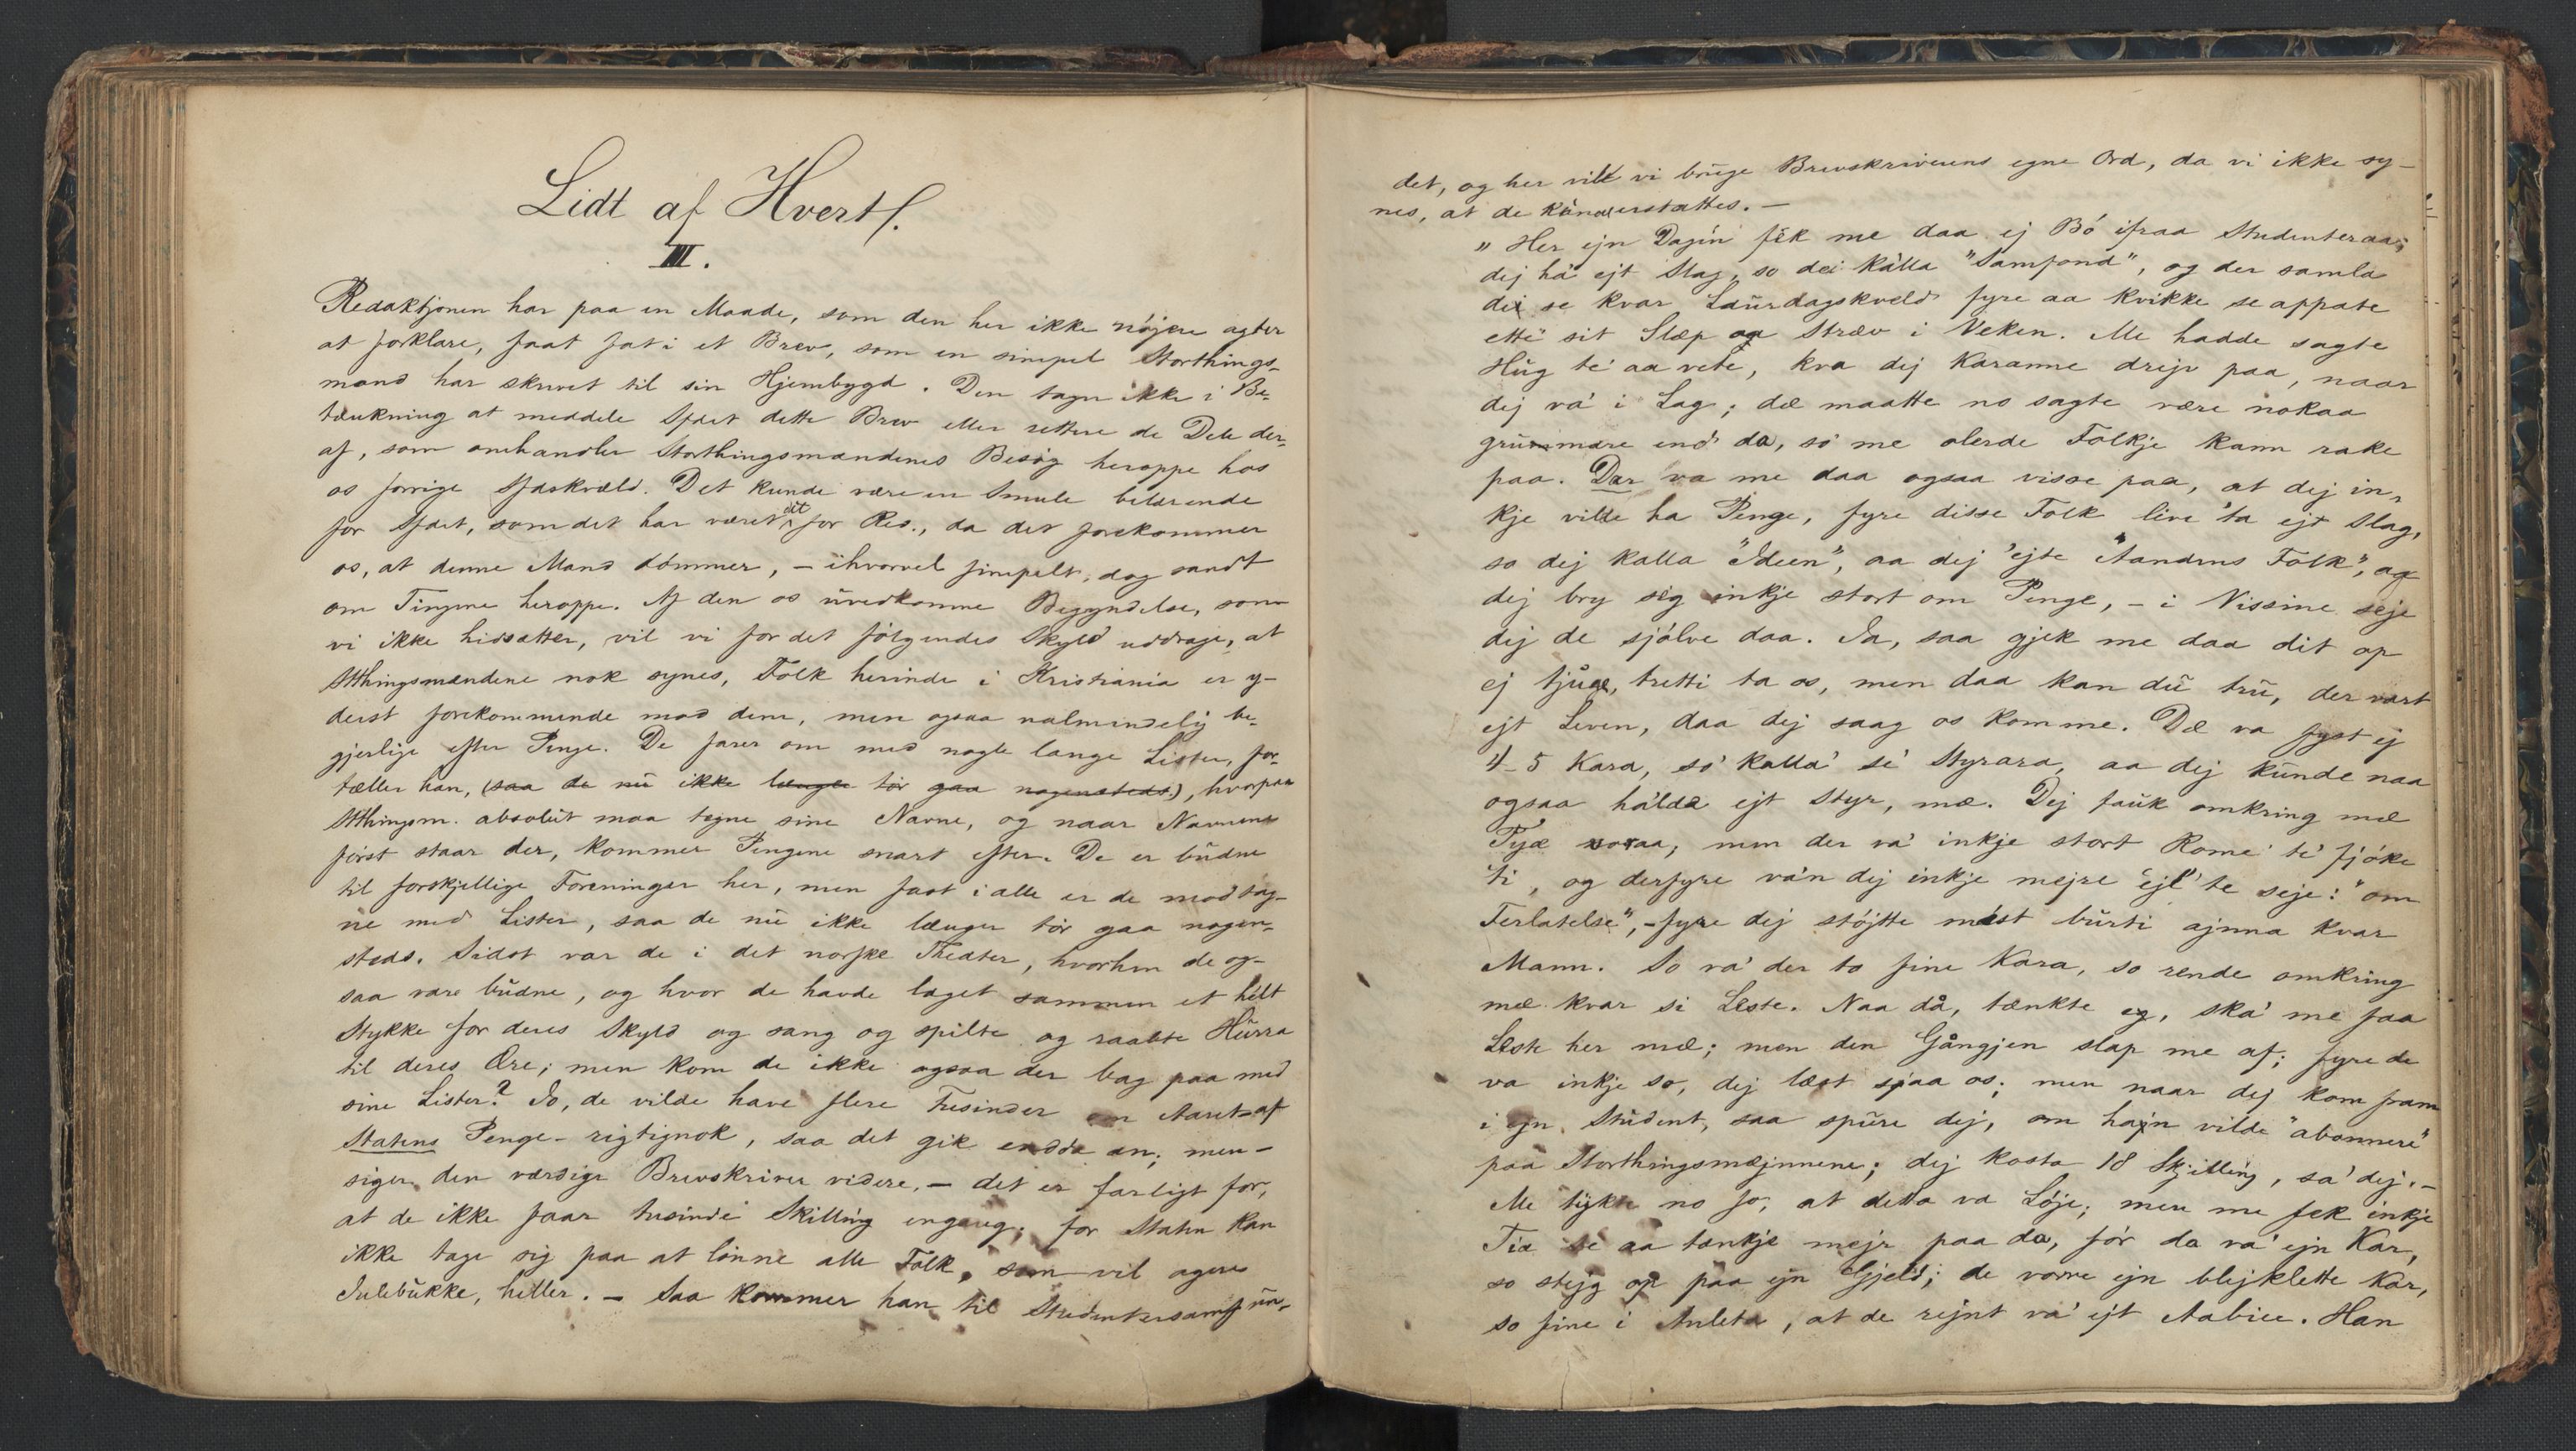 Lidt af Hvert.
III.
Redaktjonen har paa en Maade, som den her ikke nöjere agter
at forklare, faat fat i et Brev, som en simpel Storthings-
mand har skrevet til sin Hjembygd. Den tager ikke i Be-
tænkning at meddele Sfdet dette Brev eller rettere de Dele der-
af, som omhandler Storthingsmændenes Besög heroppe hos
os forrige Sfdskvæld. Det kunde være en Smule belærende
for Sfdet, som det har været det for Red., da det forekommer
os, at denne Mand dömmer, – ihvorvel simpelt, dog sandt
om Tingene heroppe. Af den os uvedkomme Begyndelse, som
vi ikke hidsætter, vil vi for det fölgendes Skyld uddrage, at
Stthingsmændene nok synes, Folk herinde i Kristiania er y-
derst forekommende mod dem, men ogsaa ualmindelig be-
gjerlige efter Penge. De farer om med nogle lange Lister, for-
tæller han, (saa de nu ikke længer tör gaa nogensteds), hvorpaa
Stthingsm. absolut maa tegne sine Navne, og naar Navnene
först staar der, kommer Pengene snart efter. De er budne
til forskjellige Foreninger her, men fast i alle er de modtag-
ne med Lister, saa de nu ikke længer tör gaa nogen-
steds. Sidst var de i det norske Theater, hvorhen de og-
saa vare budne, og hvor de havde laget sammen et helt
Stykke for deres Skyld og sang og spilte og raabte Hurra
til deres Ære; men kom de ikke ogsaa der bag paa med
sine Lister? Jo, de vilde have flere Tusinder om Aaret af
Statens Penge – rigtignok, saa det gik endda an; men –
siger den værdige Brevskriver videre, – det er farligt for,
at de ikke faar tusinde Skilling engang; for Staten kan
ikke tage sig paa at lönne alle Folk, som vil agere
Julebukke, heller. – Saa kommer han til Studentersamfun-
det, og her vill vi bruge Brevskriverens egne Ord, da vi ikke sy-
nes, at de kan erstattes. –
"Her ejn Dagin fek me daa ej Bó ifraa Studenteraa;
dej há ejt Slag, so dei kálla "Samfond", og der samla
dei se kvar Laurdagskveld fyre aa kvikke se appate
ette sit Slæp og Stræv i Veken. Me hadde sagte
Hug te aa vete, kva dej Karanne drejv paa, naar
dej vá i Lag; dæ maatte no sagte være nokaa
grummare end da, só me olerde Folkje kann rake
paa. Dær va me daa ogsaa visse paa, at dej in-
kje vilde ha Penge, fyre disse Folk live 'ta ejt Slag,
so dej kalla "Ideen", aa dej 'ejte "Aandens Folk", og
dej bry seg inkje stort om Penge, – i Vissine seje
dej de sjölve daa. Ja, saa gjek me daa dit op
ej tjuge, tretti ta os, men daa kan du tru, der vart
ejt Leven, daa dej saag os komme. Dæ va fyst ej
4–5 Kara, só kalla' sé Styrara, aa dej kunde naa
ogsaa hálda ejt Styr, mæ. Dej fauk omkring mæ
men der vá inkje stort Rome té fjóke
ti, og derfyre vá'n dej inkje mejre 'ejl' te seje: "om
Ferlatelse", – fyre dej stöjtte mest burti ajnna kvar
Mann. So vá der to fine Kara, so rende omkring
mæ kvar si Leste. Naa då, tænkte eg, ská me faa
Leste her mæ; men den Gångjen slap me af; fyre de
va inkje so, dej læst sjaa os; men naar dej kom fram
i ejn Student, saa spure dej, om hajn vilde "abonnere"
paa Storthingsmæjnnene; dej kosta 18 Skjilling, sa' dej. –
Me tykte no jo, at detta va Löje; men me fek inkje
Tia te aa tænkje mejr paa da, fór da vá ejn Kar,
so stejg op paa ejn Gjeld; de vorre ejn blejklette Kar,
so fine i Anleta, at de rejnt vá ejt Aabice. Han